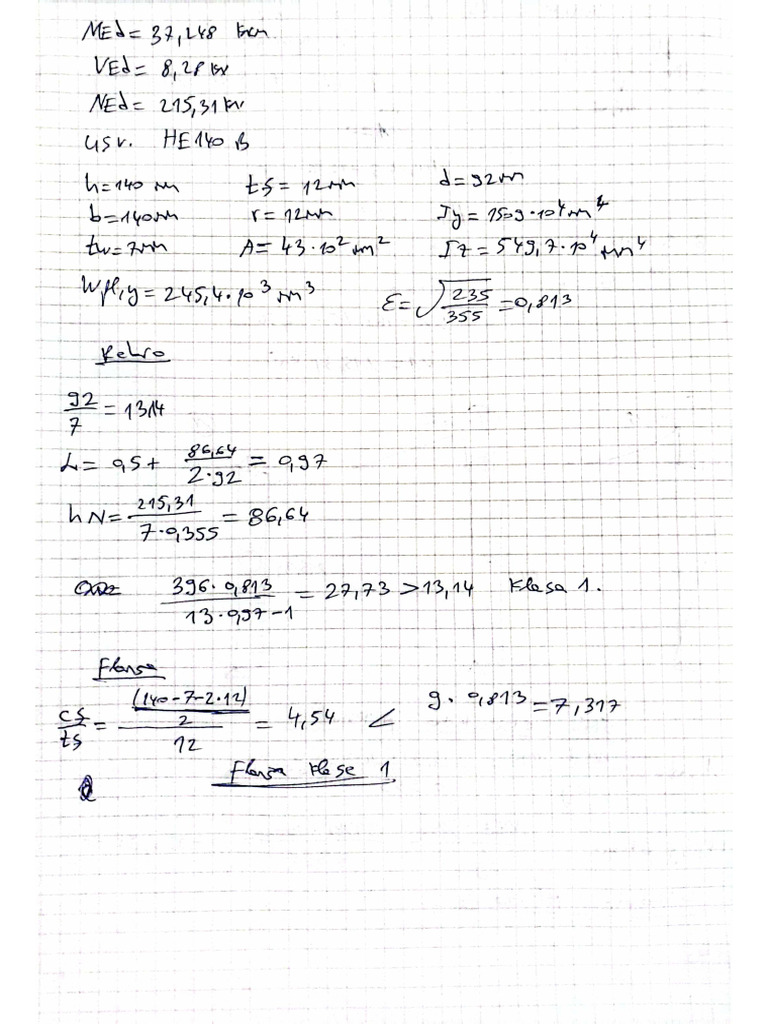 MEd = 37,248 kNm
VEd = 8,28 kN
NEd = 215,31 kN
usv. HE140 B
h = 140 mm tf = 12 mm d = 92 mm
b = 140 mm r = 12 mm Iy = 1509·10⁴ mm⁴
tw = 7 mm A = 43·10² mm² Iz = 549,7·10⁴ mm⁴
Wpl,y = 245,4·10³ mm³ ε = √(235/355) = 0,813
Rebro
92/7 = 13,14
α = 0,5 + 86,64/(2·92) = 0,97
hN = 215,31/(7·0,355) = 86,64
(396·0,813)/(13·0,97-1) = 27,73 > 13,14 Klasa 1.
Flansa
cf/tf = ((140-7-2·12)/2)/12 = 4,54 < 9·0,813 = 7,317
Flansa klase 1